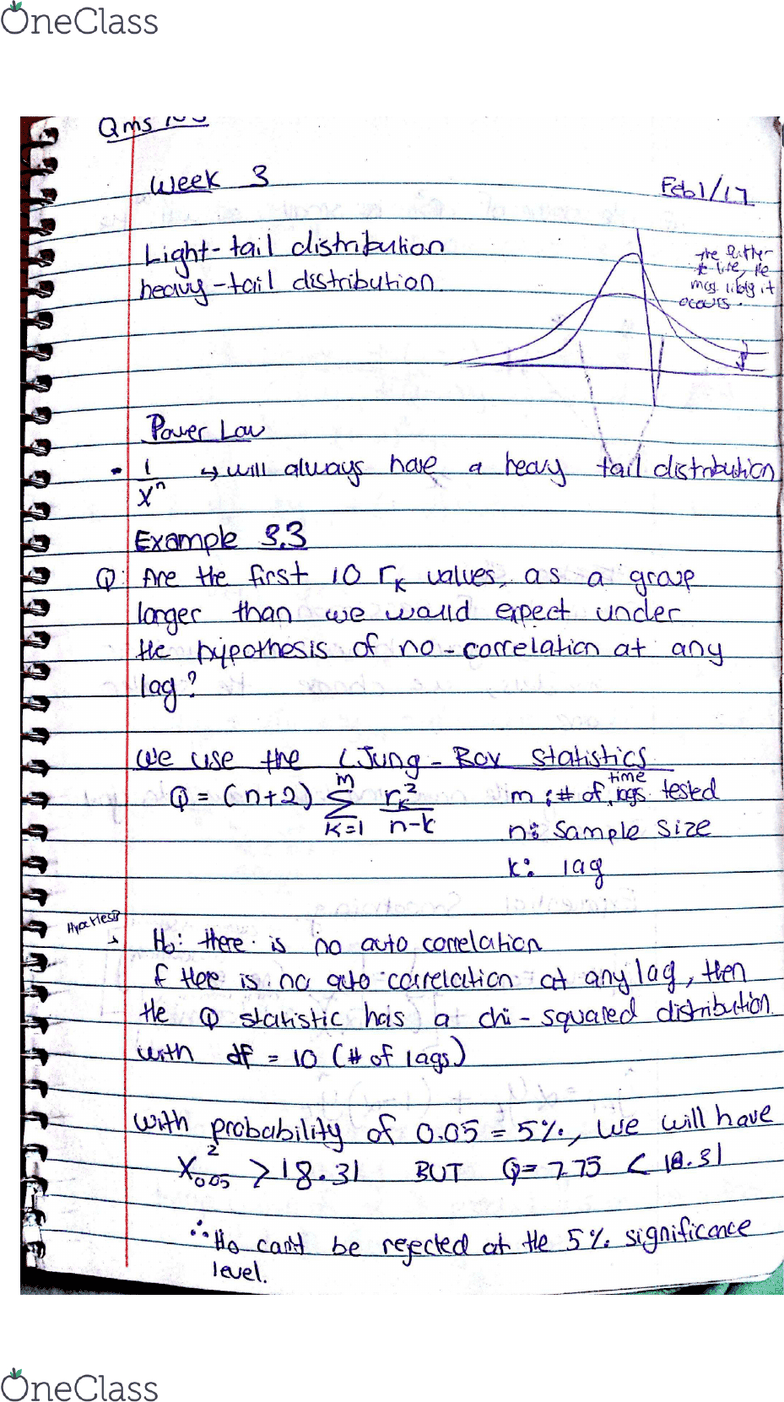 OneClass
Qms
Week 3
Feb 1/17
Light-tail distribution
heavy-tail distribution
the
it
occurs.
Power Law
• 1/x^n → will always have a heavy tail distribution
Example 3.3
Q: Are the first 10 rk values, as a group
larger than we would expect under
the hypothesis of no-correlation at any
lag?
We use the LJung-Box statistics
Q = (n+2) m Σ k=1 rk²/n-k
m: # of time lags tested
n: Sample size
k: lag
H₀: there is no auto correlation
if there is no auto-correlation at any lag, then
the Q statistic has a chi-squared distribution
with df = 10 (# of lags)
with probability of 0.05 = 5%, we will have
X²0.05 > 18.31 BUT Q= 7.75 < 18.31
∴ H₀ can't be rejected at the 5% significance
level.
OneClass